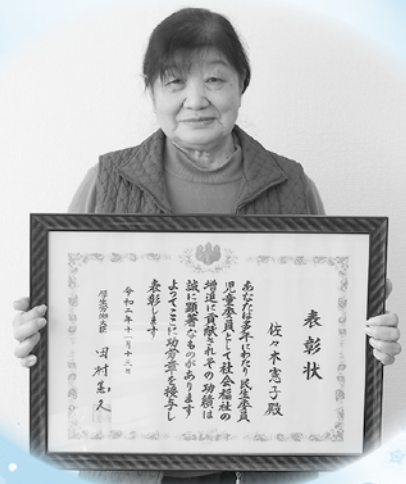 表彰状
佐々木憲子殿
あなたは多年にわたり民生委員
児童委員として社会福祉の
増進に貢献されその功績は
誠に顕著なものがあります
よってここに功労章を授与し
表彰します
令和二年十一月十三日
厚生労働大臣 田村憲久